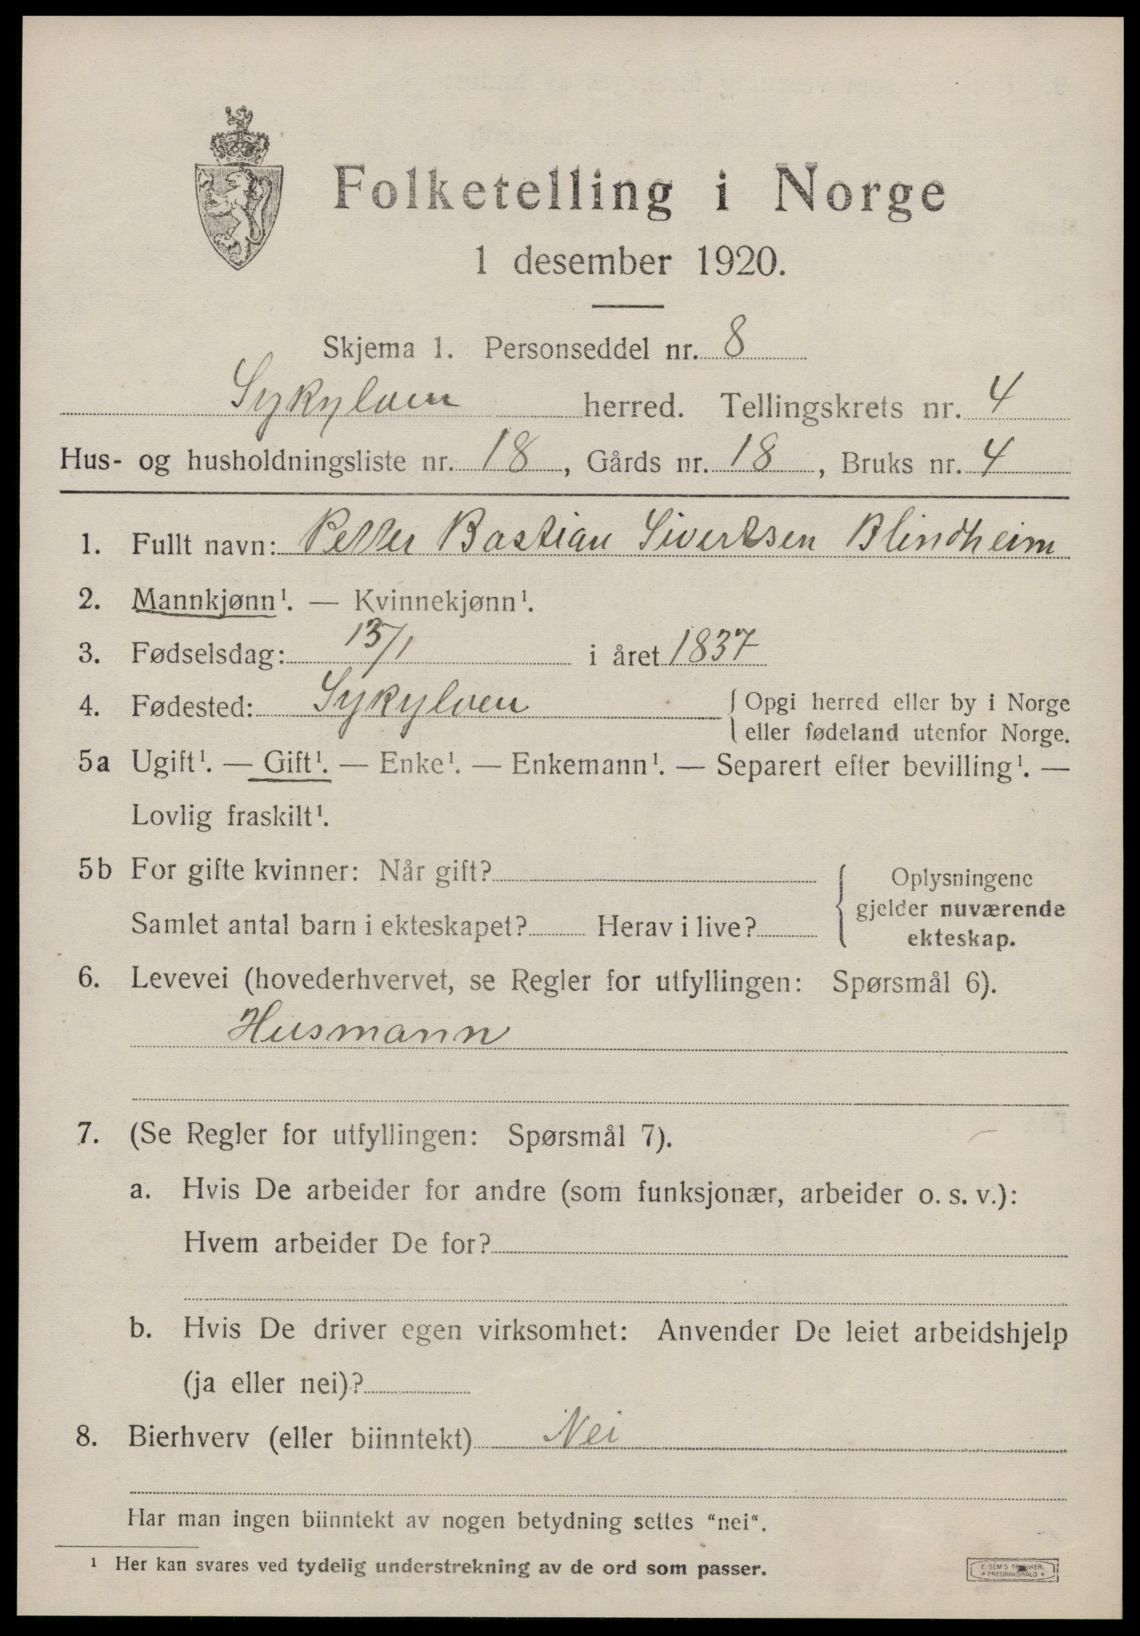 Folketelling i Norge
1 desember 1920.
Skjema 1. Personseddel nr. 8
Sykylven herred. Tellingskrets nr. 4
Hus- og husholdningsliste nr. 18, Gårds nr. 18, Bruks nr. 4
1. Fullt navn: Petter Bastian Sivertsen Blindheim
2. Mannkjønn¹. — Kvinnekjønn¹.
3. Fødselsdag: 13/1 i året 1837
4. Fødested: Sykylven { Opgi herred eller by i Norge
eller fødeland utenfor Norge.
5a Ugift¹. — Gift¹. — Enke¹. — Enkemann¹. — Separert efter bevilling¹. —
Lovlig fraskilt¹.
5b For gifte kvinner: Når gift?
Samlet antal barn i ekteskapet? Herav i live?
{ Oplysningene
gjelder nuværende
ekteskap.
6. Levevei (hovederhvervet, se Regler for utfyllingen: Spørsmål 6).
Husmann
7. (Se Regler for utfyllingen: Spørsmål 7).
a. Hvis De arbeider for andre (som funksjonær, arbeider o. s. v.):
Hvem arbeider De for?
b. Hvis De driver egen virksomhet: Anvender De leiet arbeidshjelp
(ja eller nei)?
8. Bierhverv (eller biinntekt) Nei
Har man ingen biinntekt av nogen betydning settes "nei".
¹ Her kan svares ved tydelig understrekning av de ord som passer.
E. SEM'S TRYKKERI
* FREDRIKSHALD *